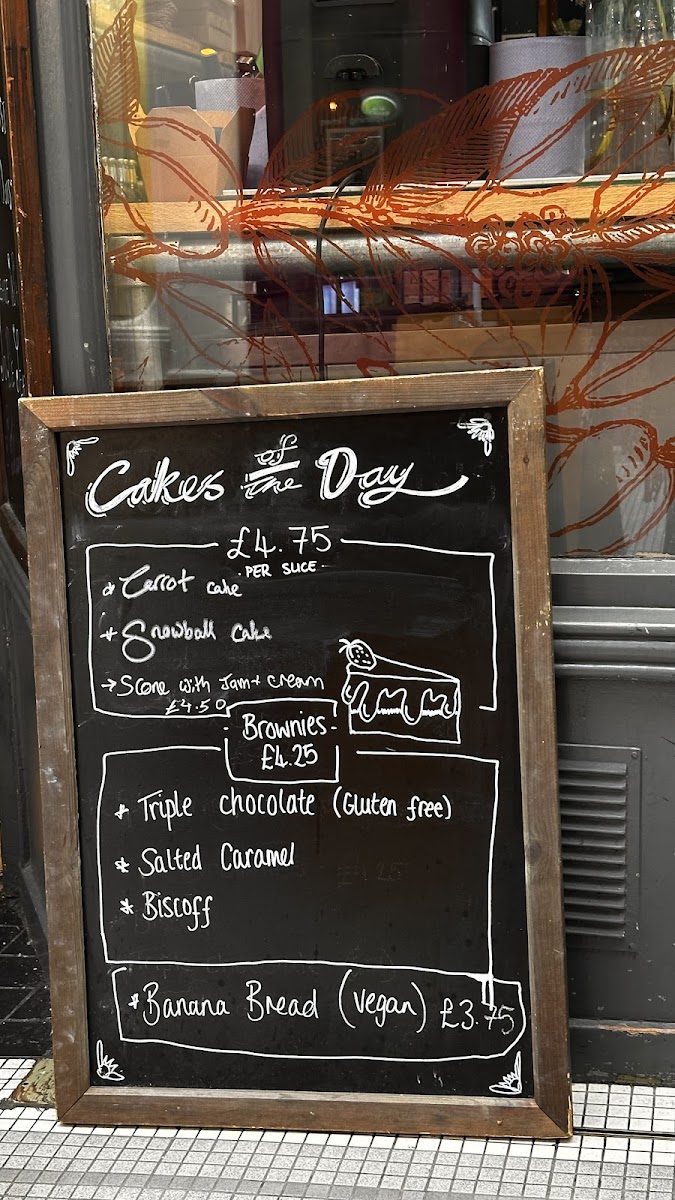 Cakes of the Day
£4.75
PER SLICE
* Carrot cake
* Snowball cake
→ Scone with Jam + cream
£4.50
Brownies
£4.25
* Triple chocolate (Gluten free)
* Salted Caramel
* Biscoff
* Banana Bread (vegan) £3.75